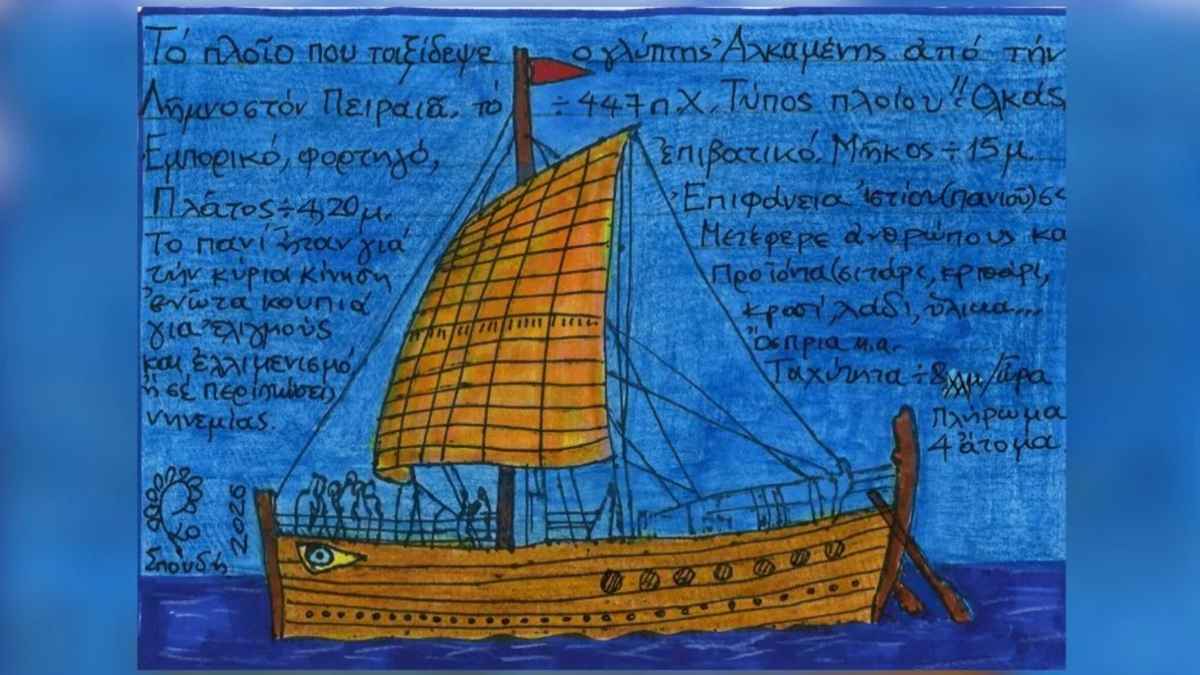 Τό πλοῖο που ταξίδεψε ο γλύπτης Ἀλκαμένης από τήν
Λῆμνο στόν Πειραιᾶ, τό ÷ 447 π Χ. Τύπος πλοίου "Ολκάς
Εμπορικό, φορτηγό, ἐπιβατικό. Μῆκος ÷ 15 μ.
Πλάτος ÷ 4,20 μ. Ἐπιφάνεια ἱστίου (πανιοῦ) 65
Το πανί ἦταν γιά Μετέφερε ἀνθρώπους κα
τήν κύρια κίνηση προϊόντα (σιτάρι, κριθάρι,
ἐνῶ τα κουπιά κρασί, λάδι, ὑλικα...
για ἑλιγμούς ὄσπρια κ.α.
και ἐλλιμενισμό, Ταχύτητα ÷ 8 /ὥρα
ἤ σέ περιπτώσεις Πλήρωμα
νηνεμίας. 4 ἄτομα.
2026
Σπουδή